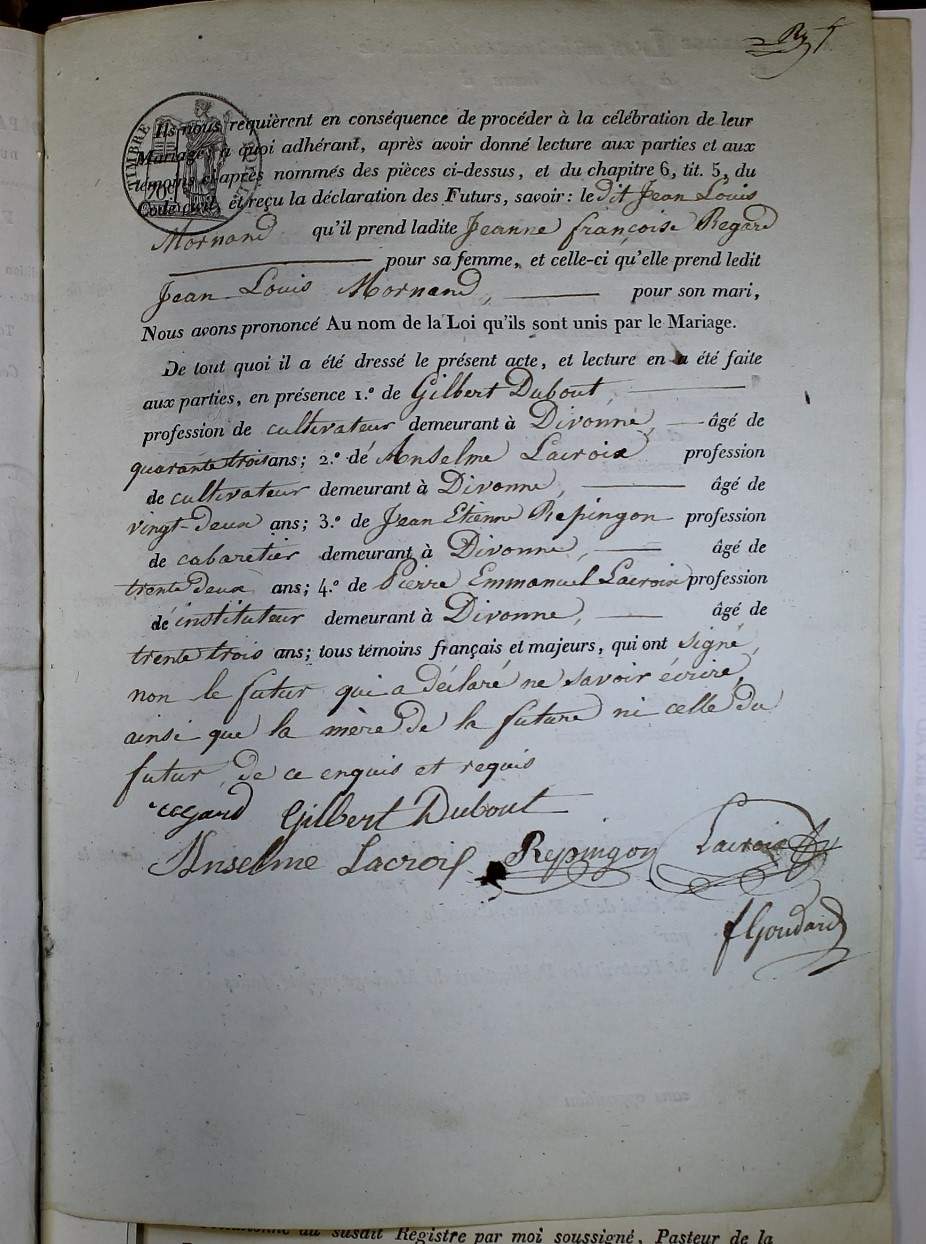 TIMBRE
Ils nous requièrent en conséquence de procéder à la célébration de leur
Mariage; à quoi adhérant, après avoir donné lecture aux parties et aux
témoins ci-après nommés des pièces ci-dessus, et du chapitre 6, tit. 5, du
Code civil, et reçu la déclaration des Futurs, savoir: le dit Jean Louis
Mornand qu'il prend ladite Jeanne françoise Regard
pour sa femme, et celle-ci qu'elle prend ledit
Jean Louis Mornand, pour son mari,
Nous avons prononcé Au nom de la Loi qu'ils sont unis par le Mariage.
De tout quoi il a été dressé le présent acte, et lecture en a été faite
aux parties, en présence 1.º de Gilbert Dubout,
profession de cultivateur demeurant à Divonne, âgé de
quarante trois ans; 2.º de Anselme Lacroix profession
de cultivateur demeurant à Divonne, âgé de
vingt-deux ans; 3.º de Jean Etienne Repingon profession
de cabaretier demeurant à Divonne, âgé de
trente deux ans; 4.º de Pierre Emmanuel Lacroix profession
de instituteur demeurant à Divonne, âgé de
trente trois ans; tous témoins français et majeurs, qui ont signé,
non le futur qui a déclaré ne savoir écrire,
ainsi que la mère de la future ni celle du
futur, de ce enquis et requis
regard Gilbert Dubout
Anselme Lacroix Repingon Lacroix
f Goudard
au susdit Registre par moi soussigné, Pasteur de la